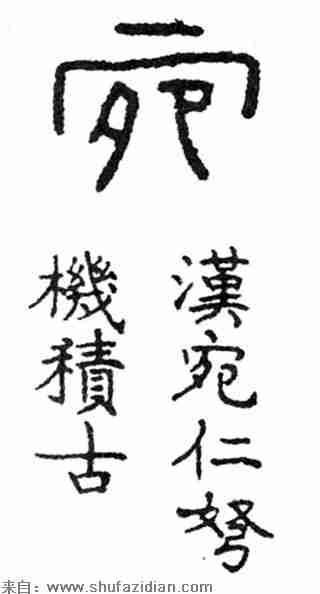 宛
漢宛仁弩
機積古
来自：www.shufazidian.com